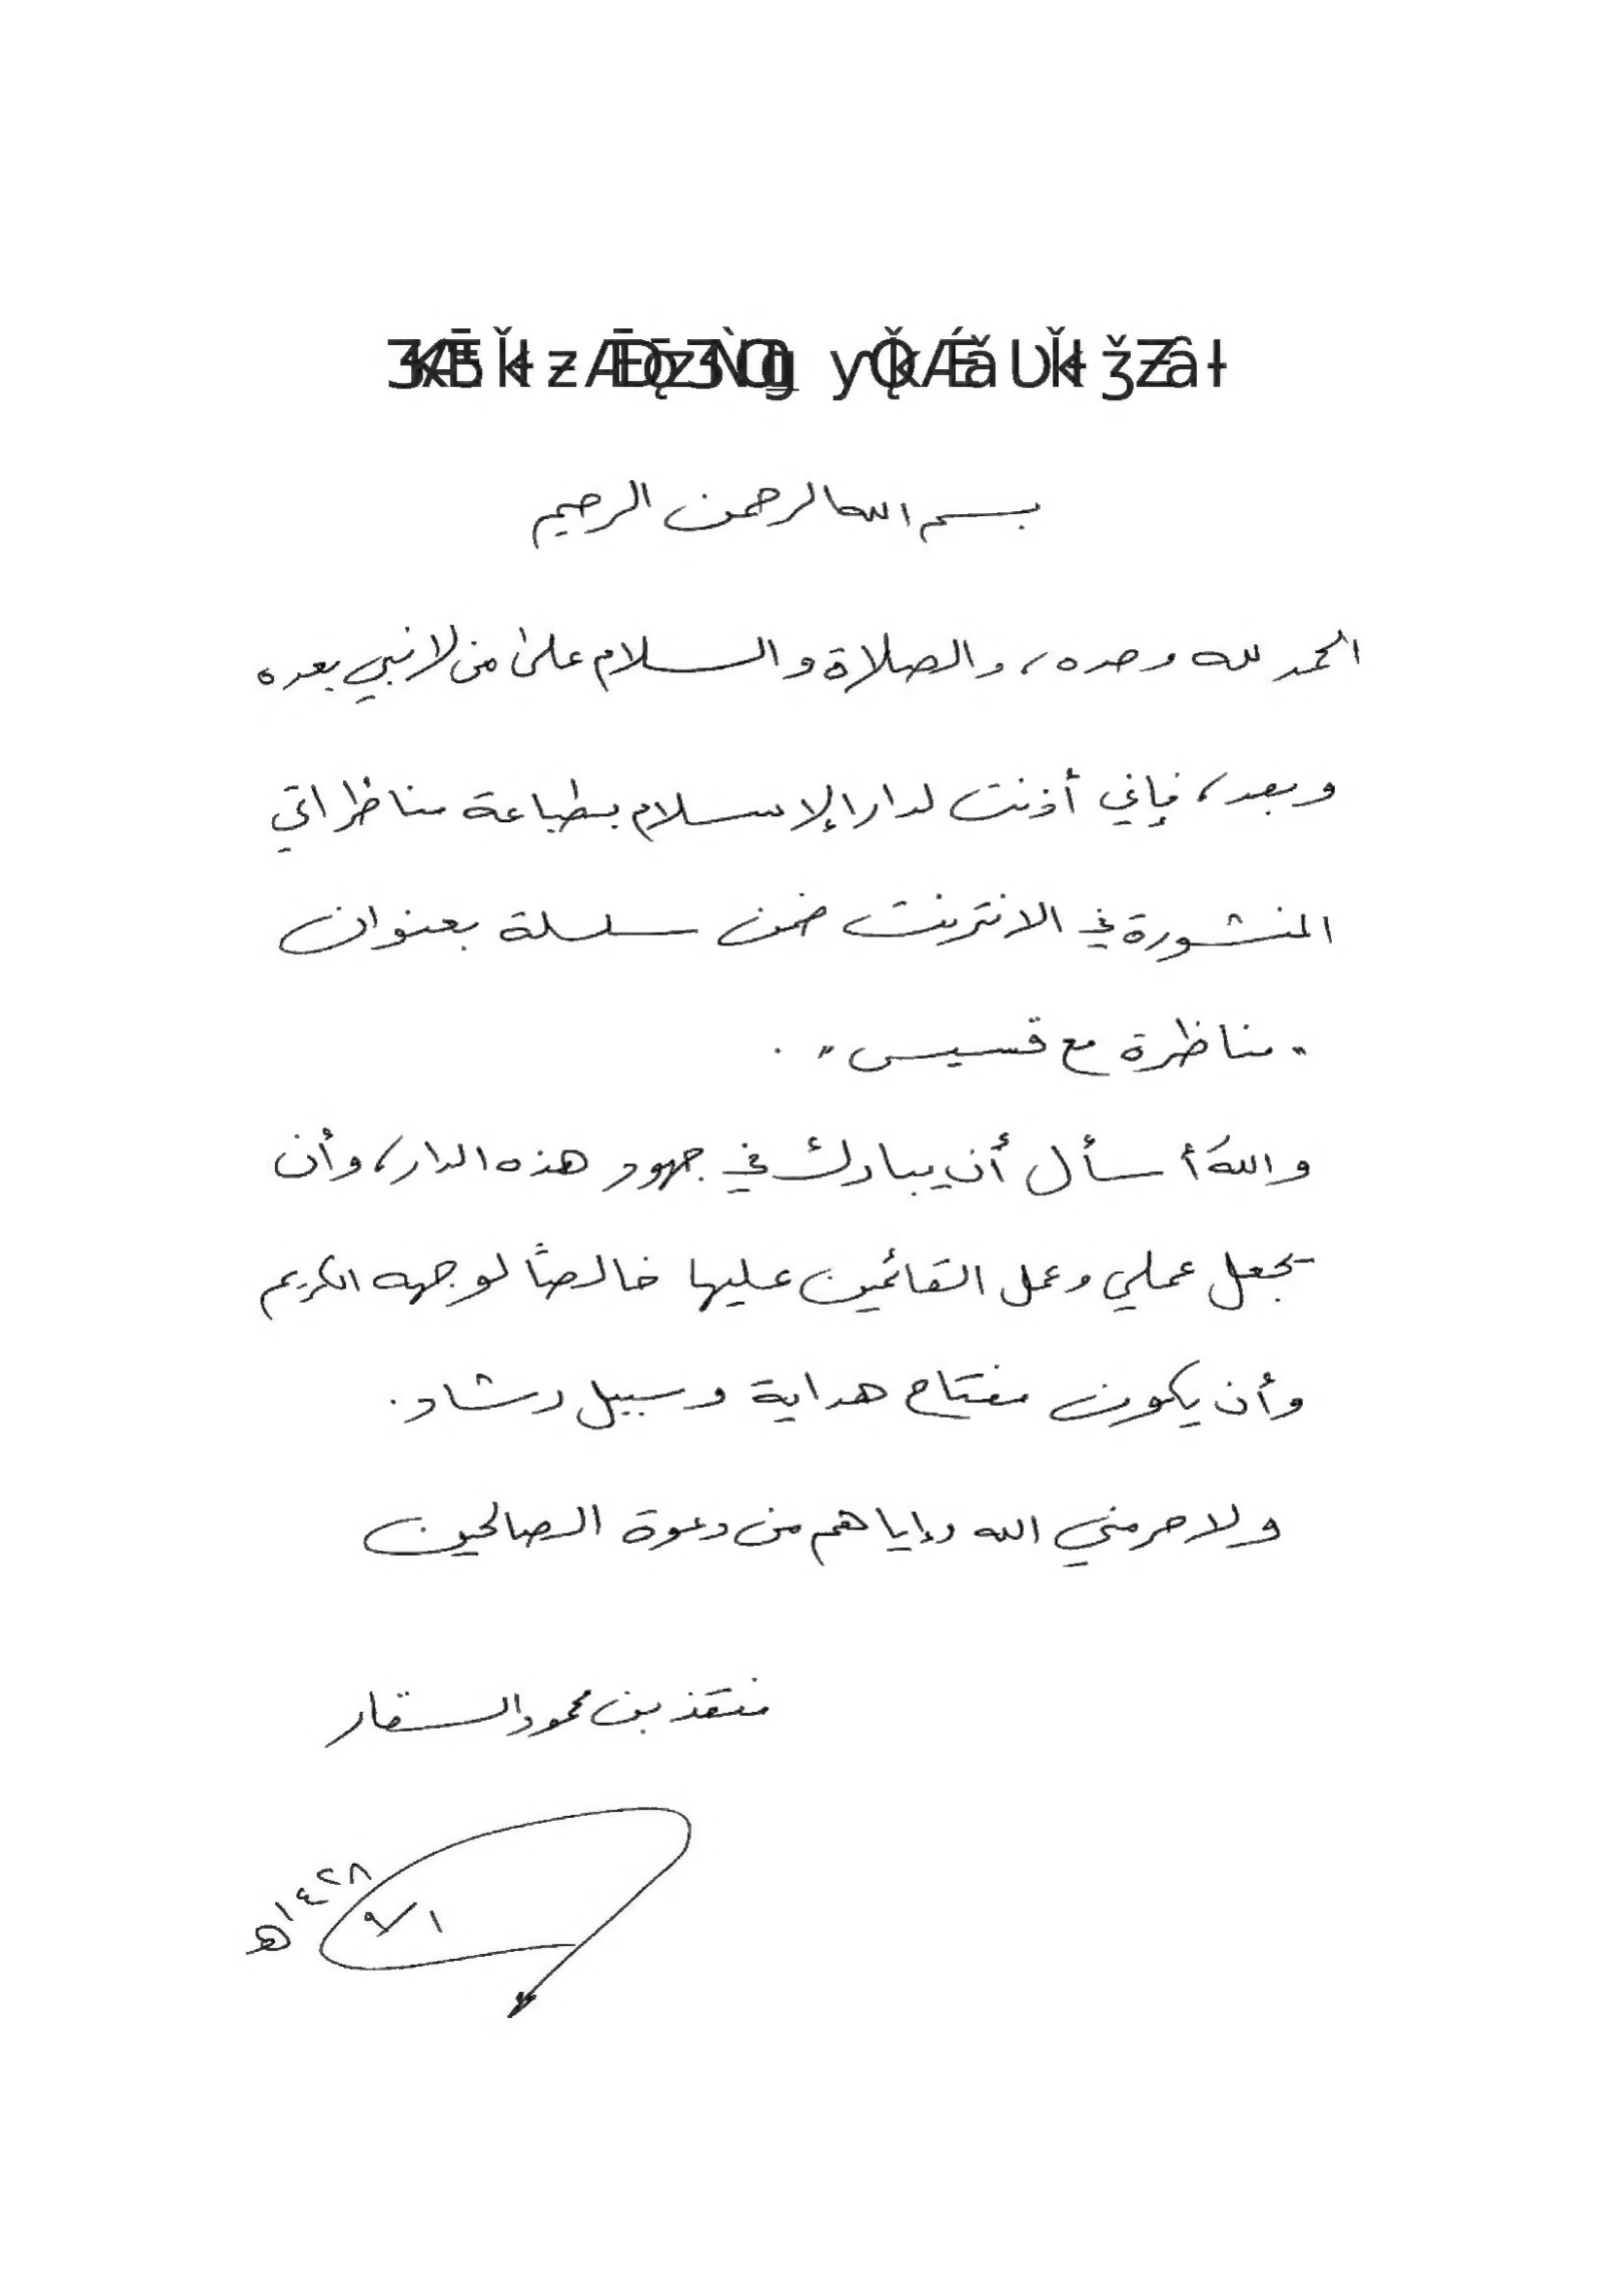 بسم الله الرحمن الرحيم
الحمد لله وحده، والصلاة والسلام على من لا نبي بعده
وبعد، فإني أذنت لدار الإسلام بطباعة مناظراتي
المنشورة في الانترنت ضمن سلسلة بعنوان
"مناظرة مع قسيس".
واللهَ أسأل أن يبارك في جهود هذه الدار، وأن
يجعل عملي وعمل القائمين عليها خالصًا لوجهه الكريم
وأن يكون مفتاح هداية وسبيل رشاد.
ولا حرمني الله وإياهم من دعوة الصالحين
منقذ بن محمود السقار
١٤٢٨هـ
٩/١